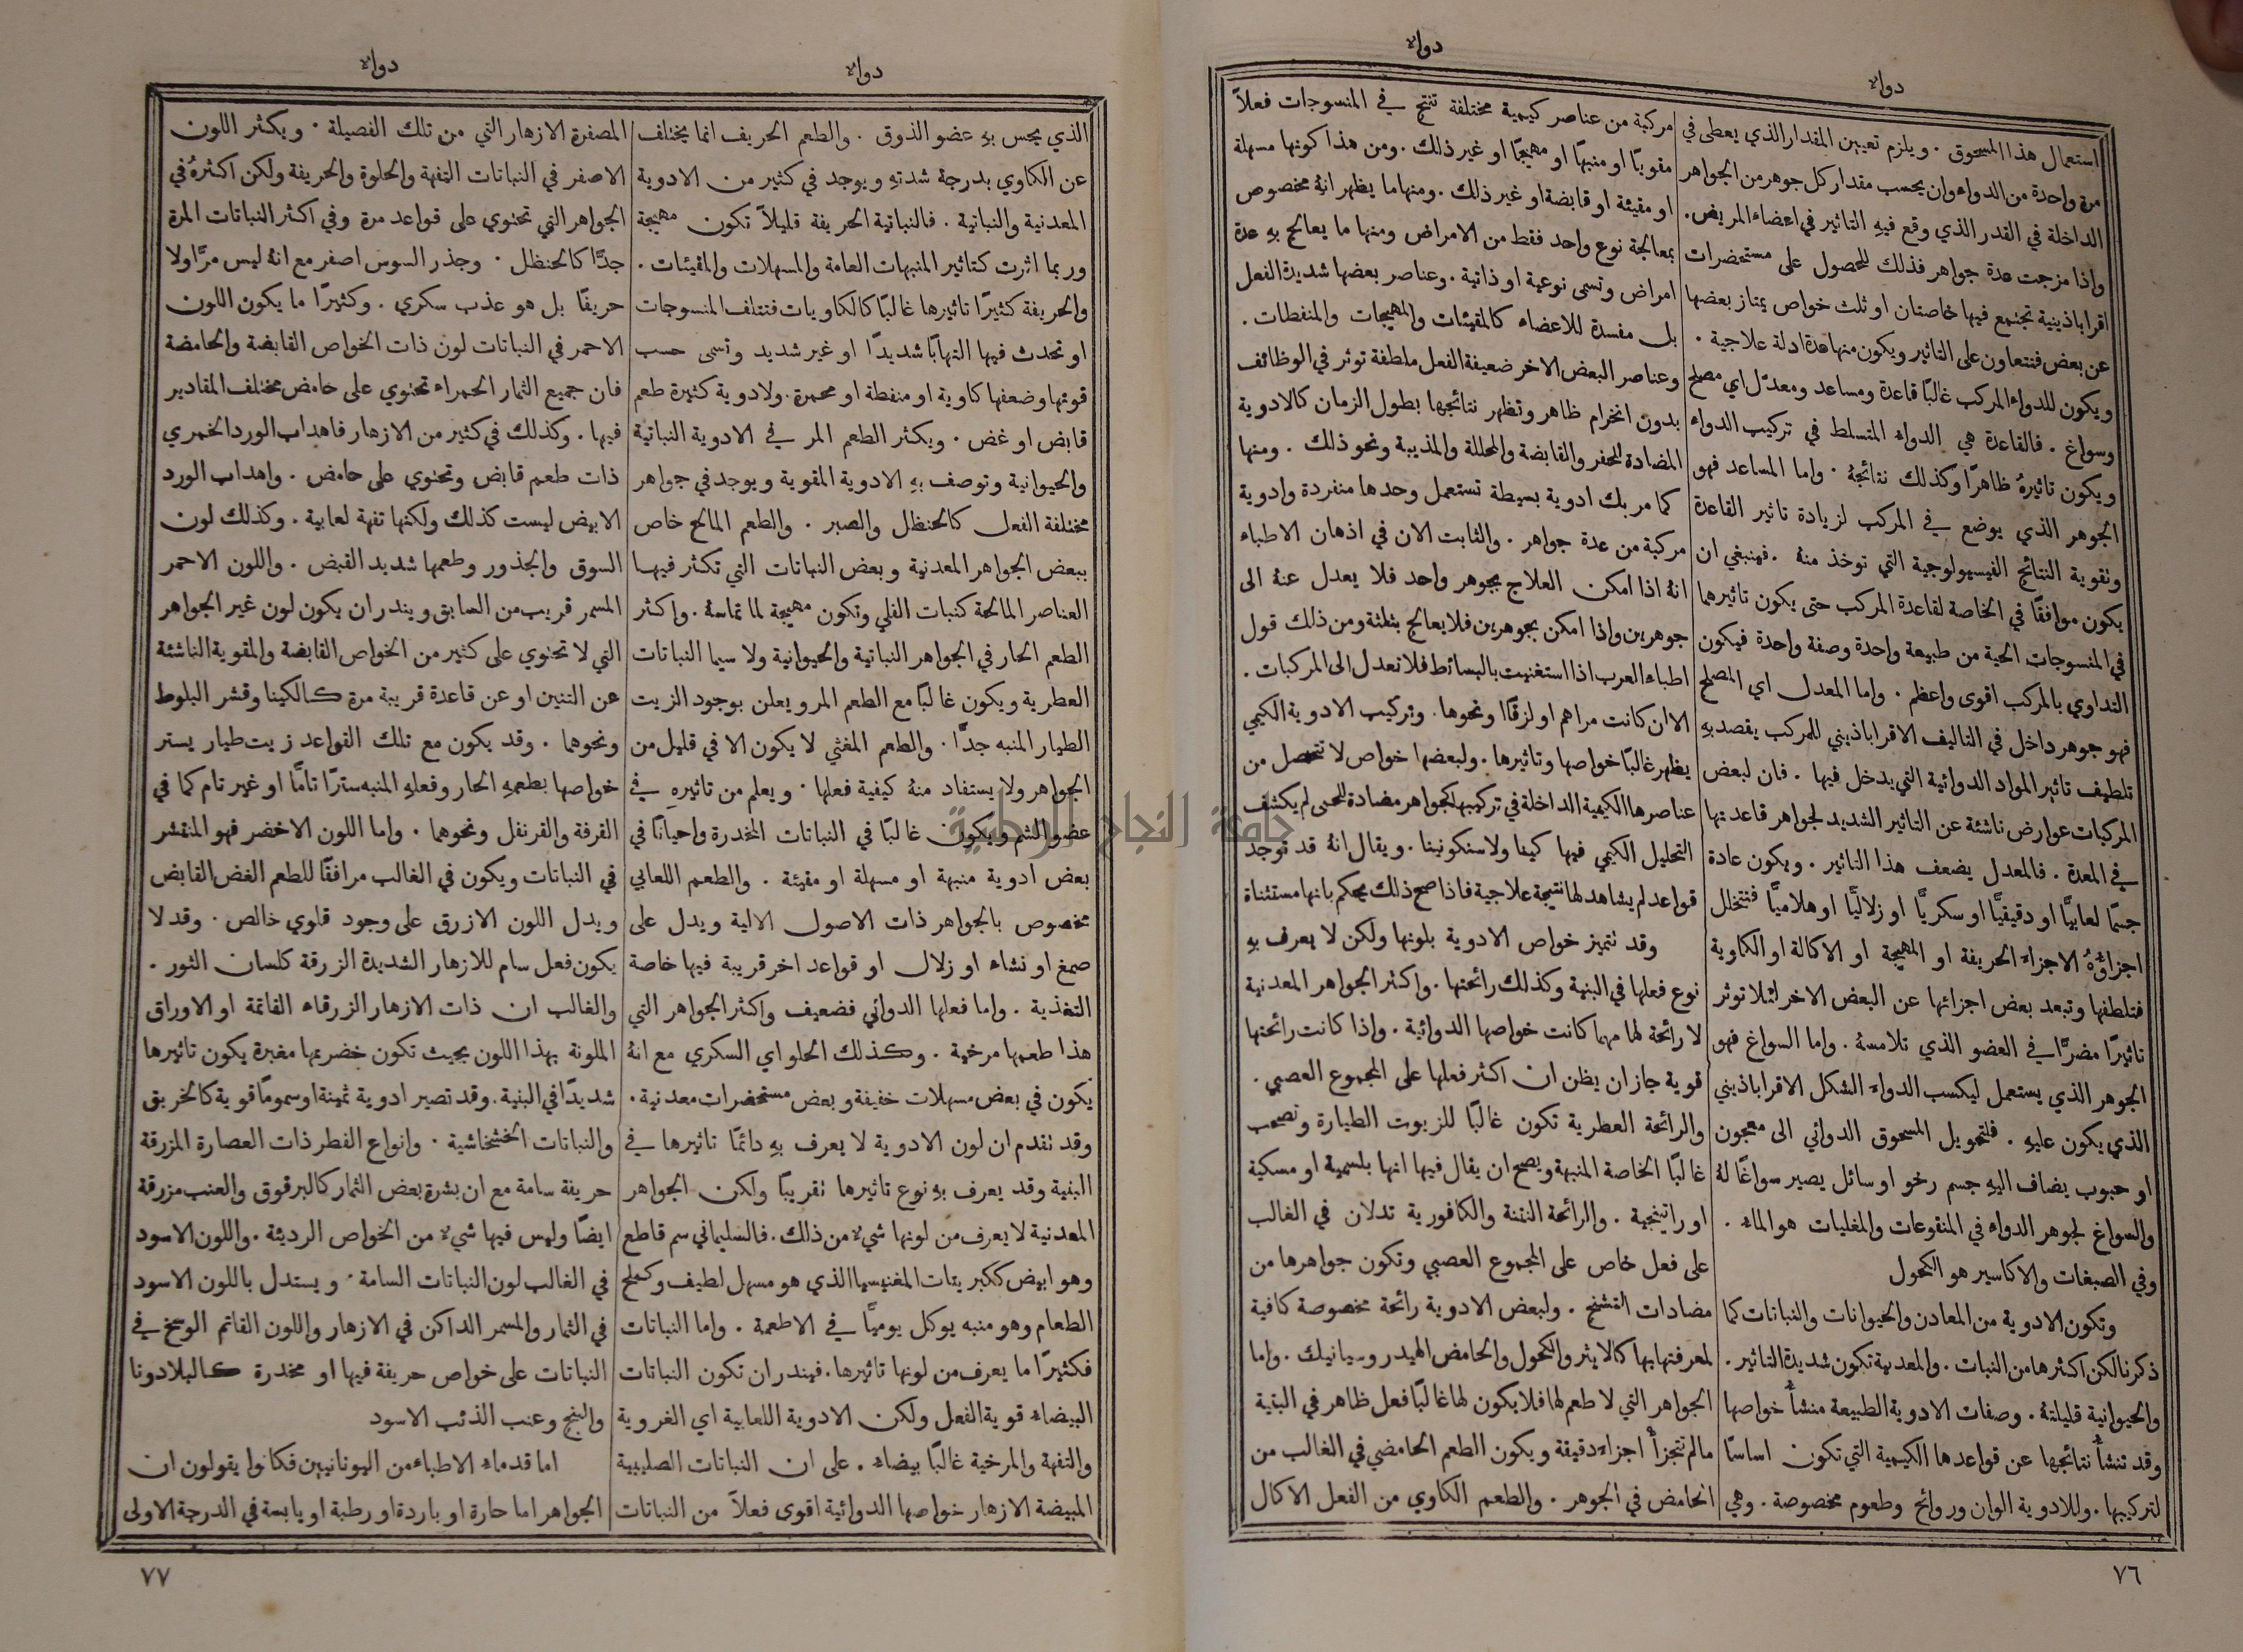 دواء
دواء
استعمال هذا المسحوق . ويلزم تعيين المقدار الذي يعطى في
مرة واحدة من الدواء وان يحسب مقدار كل جوهر من الجواهر
الداخلة في القدر الذي وقع فيهِ التاثير في اعضاء المريض.
واذا مزجت عدة جواهر فذلك للحصول على مستحضرات
اقراباذينية تجتمع فيها خاصتان او ثلث خواص يمتاز بعضها
عن بعض فتتعاون على التاثير ويكون منها عدة ادلة علاجية .
ويكون للدواء المركب غالبًا قاعدة ومساعد ومعدّل اي مصلح
وسواغ . فالقاعدة هي الدواء المتسلط في تركيب الدواء
ويكون تاثيرهُ ظاهرًا وكذلك نتائجهُ . واما المساعد فهو
الجوهر الذي يوضع في المركب لزيادة تاثير القاعدة
وتقوية النتائج الفيسيولوجية التي توخذ منهُ . فينبغي ان
يكون موافقًا في الخاصة لقاعدة المركب حتى يكون تاثيرهما
في المنسوجات الحية من طبيعة واحدة وصفة واحدة فيكون
التداوي بالمركب اقوى واعظم . واما المعدل اي المصلح
فهو جوهر داخل في التاليف الاقراباذيني للمركب يقصد بهِ
تلطيف تاثير المواد الدوائية التي يدخل فيها . فان لبعض
المركبات عوارض ناشئة عن التاثير الشديد لجواهر قاعدتها
في المعدة . فالمعدل يضعف هذا التاثير . ويكون عادة
جسمًا لعابيًّا او دقيقيًّا او سكريًّا او زلاليًّا او هلاميًّا فتتخلل
اجزاؤهُ الاجزاء الحريفة او المهيجة او الاكالة او الكاوية
فتلطفها وتبعد بعض اجزائها عن البعض الاخر لئلا توثر
تاثيرًا مضرًّا في العضو الذي تلامسهُ . واما السواغ فهو
الجوهر الذي يستعمل ليكسب الدواء الشكل الاقراباذيني
الذي يكون عليهِ . فلتحويل المسحوق الدوائي الى معجون
او حبوب يضاف اليهِ جسم رخو او سائل يصير سواغًا لهُ
والسواغ لجوهر الدواء في المنقوعات والمغليات هو الماء .
وفي الصبغات والاكاسير هو الكحول
وتكون الادوية من المعادن والحيوانات والنباتات كما
ذكرنا لكن اكثرها من النبات . والمعدنية تكون شديدة التاثير .
والحيوانية قليلتهُ . وصفات الادوية الطبيعة منشأ خواصها
وقد تنشأ نتائجها عن قواعدها الكيمية التي تكون اساسًا
لتركيبها . وللادوية الوان وروائح وطعوم مخصوصة . وهي
مركبة من عناصر كيمية مختلفة تنتج في المنسوجات فعلاً
مقويًا او منبهًا او مهيجًا او غير ذلك . ومن هذا كونها مسهلة
او مقيئة او قابضة او غير ذلك . ومنها ما يظهر انهُ مخصوص
بمعالجة نوع واحد فقط من الامراض ومنها ما يعالج بهِ عدة
امراض وتسمى نوعية او ذاتية . وعناصر بعضها شديدة الفعل
بل مفسدة للاعضاء كالمقيئات والمهيجات والمنفطات .
وعناصر البعض الاخر ضعيفة الفعل ملطفة توثر في الوظائف
بدون انخرام ظاهر وتظهر نتائجها بطول الزمان كالادوية
المضادة للحفر والقابضة والمحللة والمذيبة ونحو ذلك . ومنها
كما مر بك ادوية بسيطة تستعمل وحدها منفردة وادوية
مركبة من عدة جواهر . والثابت الان في اذهان الاطباء
انهُ اذا امكن العلاج بجوهر واحد فلا يعدل عنهُ الى
جوهرين واذا امكن بجوهرين فلا يعالج بثلثة ومن ذلك قول
اطباء العرب اذا استغنيت بالبسائط فلا تعدل الى المركبات .
الا ان كانت مراهم او لزقًا ونحوها . وتركيب الادوية الكيمي
يظهر غالبًا خواصها وتاثيرها . ولبعضها خواص لا تتحصل من
عناصرها الكيمية الداخلة في تركيبها كجواهر مضادة للحمى لم يكشف
التحليل الكيمي فيها كينا ولا سنكونينا . ويقال انهُ قد توجد
قواعد لم يشاهد لها نتيجة علاجية فاذا صح ذلك يحكم بانها مستثناة
وقد تتميز خواص الادوية بلونها ولكن لا يعرف بهِ
نوع فعلها في البنية وكذلك رائحتها . واكثر الجواهر المعدنية
لا رائحة لها مهما كانت خواصها الدوائية . واذا كانت رائحتها
قوية جاز ان يظن ان اكثر فعلها على المجموع العصبي .
والرائحة العطرية تكون غالبًا للزيوت الطيارة وتصحب
غالبًا الخاصة المنبهة ويصح ان يقال فيها انها بلسمية او مسكية
او راتينجية . والرائحة النتنة والكافورية تدلان في الغالب
على فعل خاص على المجموع العصبي وتكون جواهرها من
مضادات التشنج . ولبعض الادوية رائحة مخصوصة كافية
لمعرفتها بها كالايثر والكحول والحامض الهيدروسيانيك . واما
الجواهر التي لا طعم لها فلا يكون لها غالبًا فعل ظاهر في البنية
ما لم تتجزأ اجزاء دقيقة ويكون الطعم الحامضي في الغالب من
الحامض في الجوهر . والطعم الكاوي من الفعل الاكال
٧٦
دواء
دواء
الذي يحس بهِ عضو الذوق . والطعم الحريف انما يختلف
عن الكاوي بدرجة شدتهِ ويوجد في كثير من الادوية
المعدنية والنباتية . فالنباتية الحريفة قليلاً تكون مهيجة
وربما اثرت كتاثير المنبهات العامة والمسهلات والمقيئات .
والحريفة كثيرًا تاثيرها غالبًا كالكاويات فتتلف المنسوجات
او تحدث فيها التهابًا شديدًا او غير شديد وتسمى حسب
قوتها وضعفها كاوية او منفطة او محمرة . ولادوية كثيرة طعم
قابض او غض . ويكثر الطعم المر في الادوية النباتية
والحيوانية وتوصف بهِ الادوية المقوية ويوجد في جواهر
مختلفة الفعل كالحنظل والصبر . والطعم المالح خاص
ببعض الجواهر المعدنية وبعض النباتات التي تكثر فيها
العناصر المالحة كنبات القلي وتكون مهيجة لما تماسهُ . واكثر
الطعم الحار في الجواهر النباتية والحيوانية ولا سيما النباتات
العطرية ويكون غالبًا مع الطعم المر ويعلن بوجود الزيت
الطيار المنبه جدًّا . والطعم المغثي لا يكون الا في قليل من
الجواهر ولا يستفاد منهُ كيفية فعلها . ويعلم من تاثيرهِ في
عضو الشم ويكون غالبًا في النباتات المخدرة واحيانًا في
بعض ادوية منبهة او مسهلة او مقيئة . والطعم اللعابي
مخصوص بالجواهر ذات الاصول الالية ويدل على
صمغ او نشاء او زلال او قواعد اخر قريبة فيها خاصة
التغذية . واما فعلها الدوائي فضعيف واكثر الجواهر التي
هذا طعمها مرخية . وكذلك الحلو اي السكري مع انهُ
يكون في بعض مسهلات خفيفة وبعض مستحضرات معدنية .
وقد تقدم ان لون الادوية لا يعرف بهِ دائمًا تاثيرها في
البنية وقد يعرف بهِ نوع تاثيرها تقريبًا ولكن الجواهر
المعدنية لا يعرف من لونها شيء من ذلك . فالسليماني سم قاطع
وهو ابيض ككبريتات المغنيسيا الذي هو مسهل لطيف وكملح
الطعام وهو منبه يوكل يوميًّا في الاطعمة . واما النباتات
فكثيرًا ما يعرف من لونها تاثيرها . فيندر ان تكون النباتات
البيضاء قوية الفعل ولكن الادوية اللعابية اي الغروية
والتفهة والمرخية غالبًا بيضاء . على ان النباتات الصليبية
المبيضة الازهار خواصها الدوائية اقوى فعلاً من النباتات
المصفرة الازهار التي من تلك الفصيلة . ويكثر اللون
الاصفر في النباتات التفهة والحلوة والحريفة ولكن اكثرهُ في
الجواهر التي تحتوي على قواعد مرة وفي اكثر النباتات المرة
جدًّا كالحنظل . وجذر السوس اصفر مع انهُ ليس مرًّا ولا
حريفًا بل هو عذب سكري . وكثيرًا ما يكون اللون
الاحمر في النباتات لون ذات الخواص القابضة والحامضة
فان جميع الثمار الحمراء تحتوي على حامض مختلف المقادير
فيها . وكذلك في كثير من الازهار فاهداب الورد الخمري
ذات طعم قابض وتحتوي على حامض . واهداب الورد
الابيض ليست كذلك ولكنها تفهة لعابية . وكذلك لون
السوق والجذور وطعمها شديد القبض . واللون الاحمر
المسمر قريب من السابق ويندر ان يكون لون غير الجواهر
التي لا تحتوي على كثير من الخواص القابضة والمقوية الناشئة
عن التنين او عن قاعدة قريبة مرة كالكينا وقشر البلوط
ونحوهما . وقد يكون مع تلك القواعد زيت طيار يستر
خواصها بطعمهِ الحار وفعلهِ المنبه سترًا تامًّا او غير تام كما في
القرفة والقرنفل ونحوهما . واما اللون الاخضر فهو المنتشر
في النباتات ويكون في الغالب مرافقًا للطعم الغض القابض
ويدل اللون الازرق على وجود قلوي خالص . وقد لا
يكون فعل سام للازهار الشديدة الزرقة كلسان الثور .
والغالب ان ذات الازهار الزرقاء القاتمة او الاوراق
الملونة بهذا اللون بحيث تكون خضرتها مغبرة يكون تاثيرها
شديدًا في البنية . وقد تصير ادوية ثمينة او سمومًا قوية كالخربق
والنباتات الخشخاشية . وانواع الفطر ذات العصارة المزرقة
حريفة سامة مع ان بشرة بعض الثمار كالبرقوق والعنب مزرقة
ايضًا وليس فيها شيء من الخواص الرديئة . واللون الاسود
في الغالب لون النباتات السامة . ويستدل باللون الاسود
في الثمار والمسمر الداكن في الازهار واللون القاتم الوسخ في
النباتات على خواص حريفة فيها او مخدرة كالبلادونا
والبنج وعنب الذئب الاسود
اما قدماء الاطباء من اليونانيين فكانوا يقولون ان
الجواهر اما حارة او باردة او رطبة او يابسة في الدرجة الاولى
٧٧
جامعة النجاح الوطنية